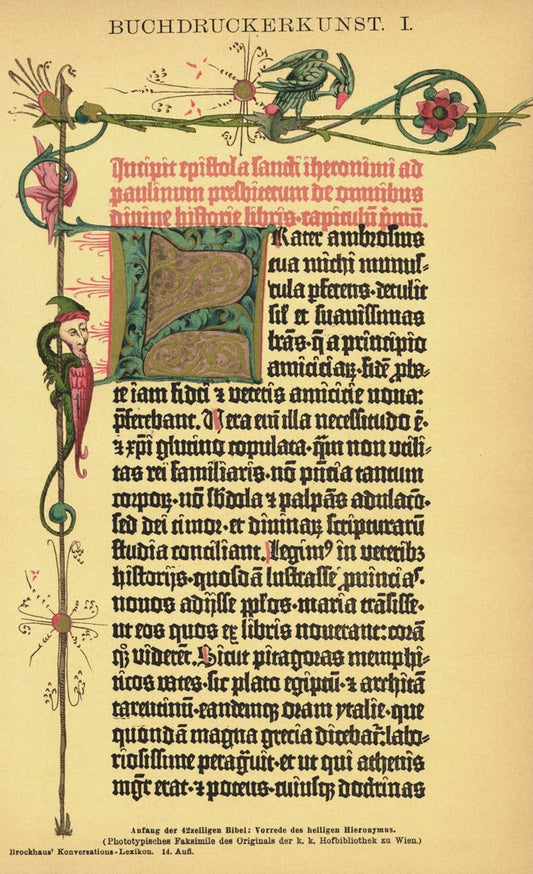 BUCHDRUCKERKUNST. I.
Incipit epistola sancti iheronimi ad
paulinum presbiterum de omnibus
divine historie libris·capitulū p̄mū.
Frater ambrosius
tua michi munus-
cula p̄ferens·detulit
sil̄ et suavissimas
lr̄as·q̄ a principio
amiciciaꝝ·fidē pba-
te iam fidei ⁊ veteris amicicie nova:
p̄ferebant. Vera em̄ illa necessitudo ē·
⁊ xp̄i glutino copulata·qm̄ non vtili-
tas rei familiaris·nō p̄ncia tantum
corpoꝝ·nō sb̄dola ⁊ palpās adulacō·
sed dei timor·et divinaꝝ scripturarū
studia conciliant. Legimꝰ in veteribꝫ
historijs·quosdā lustrasse ꝓvincias·
novos adijsse ppl̄os·maria trāsisse·
ut eos quos ex libris noverant: corā
qꝫ viderēt. Sicut pitagoras memphi-
ticos vates·sic plato egiptū·⁊ architā
tarentinū·eandemqꝫ oram ytalie·que
quondā magna grecia dicebat̄: labo-
riosissime peragvit·et ut qui athenis
mgr̄ erat·⁊ potens·cuiusqꝫ doctrinas
Anfang der 42zeiligen Bibel: Vorrede des heiligen Hieronymus.
(Phototypisches Faksimile des Originals der k. k. Hofbibliothek zu Wien.)
Brockhaus' Konversations-Lexikon. 14. Aufl.